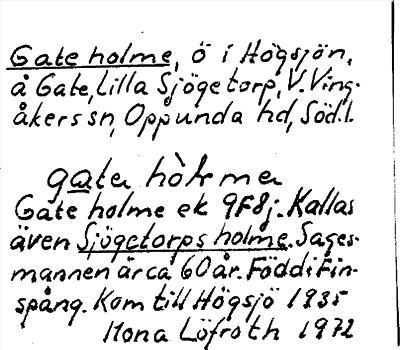 Gate holme, ö i Högsjön,
å Gate, Lilla Sjögetorp, V. Ving-
åkers sn, Oppunda hd, Söd.l.
gata hòlmen
Gate holme ek 9F8j. Kallas
även Sjögetorps holme. Sages-
mannen är ca 60 år. Född i Fin-
spång. Kom till Högsjö 1935
Mona Löfroth 1972